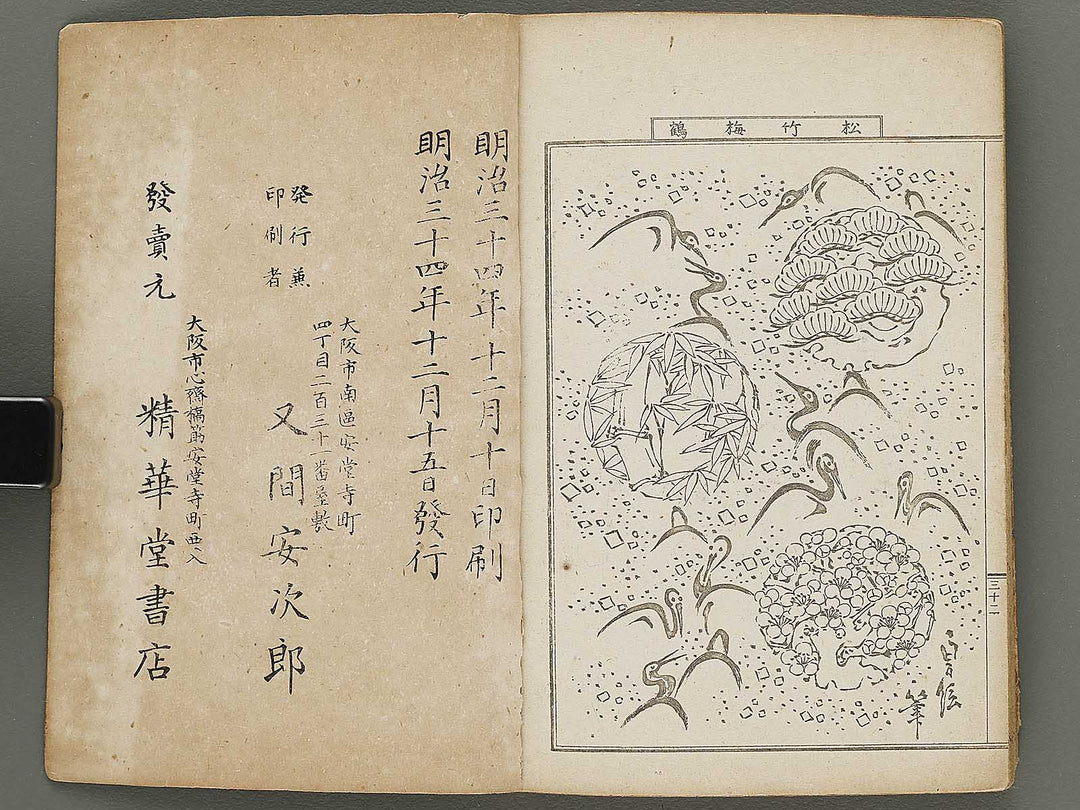 松竹梅鶴
三十二
筆
明治三十四年十二月十日印刷
明治三十四年十二月十五日發行
発行兼
印刷者
大阪市南區安堂寺町
四丁目二百三十一番屋敷
又間安次郎
大阪市心齋橋筋安堂寺町西入
發賣元
精華堂書店